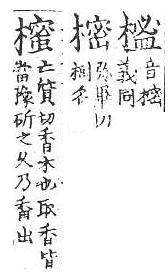 音
義同
樒
弥畢切
樹名
櫁
亡質切香木也取香皆
當豫斫之久乃香出